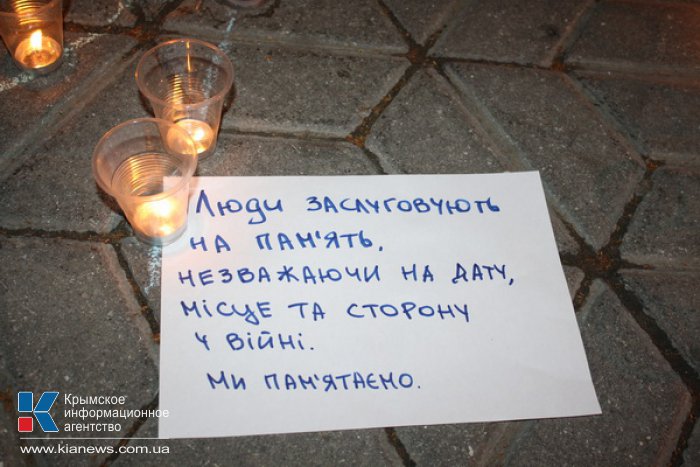 Люди заслуговують
на пам'ять,
незважаючи на дату,
місце та сторону
у війні.
Ми пам'ятаємо.
Крымское
информационное
агентство
www.kianews.com.ua